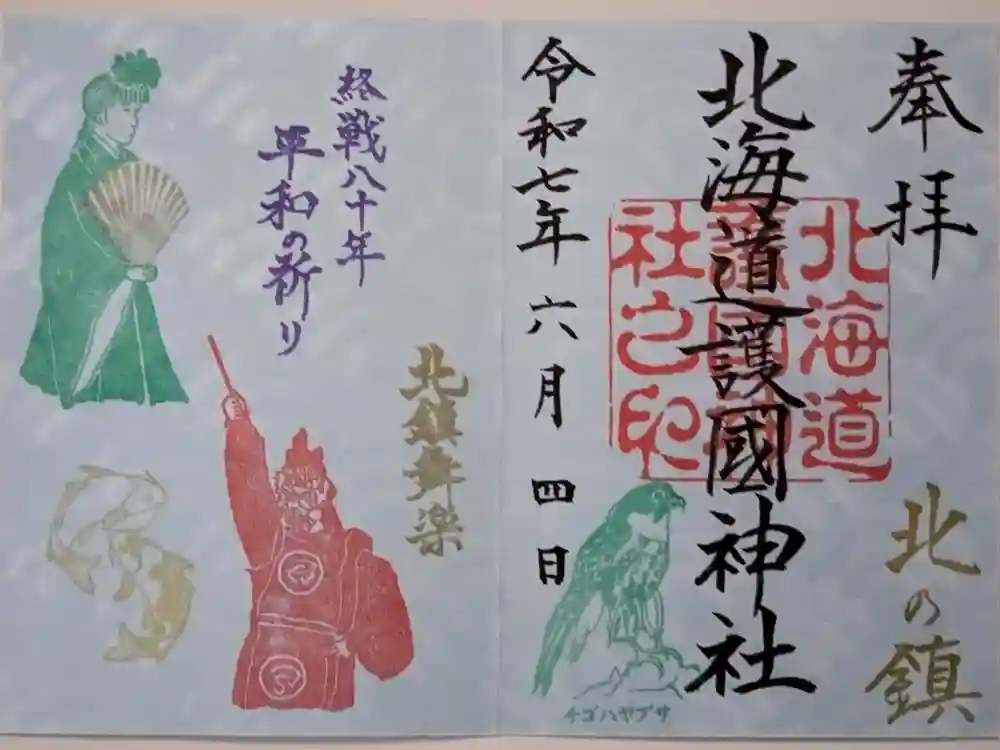 奉拝
北海道護國神社
北海道
護國神
社之印
北の鎮
令和七年六月四日
チゴハヤブサ
終戦八十年
平和の祈り
北鎮舞楽